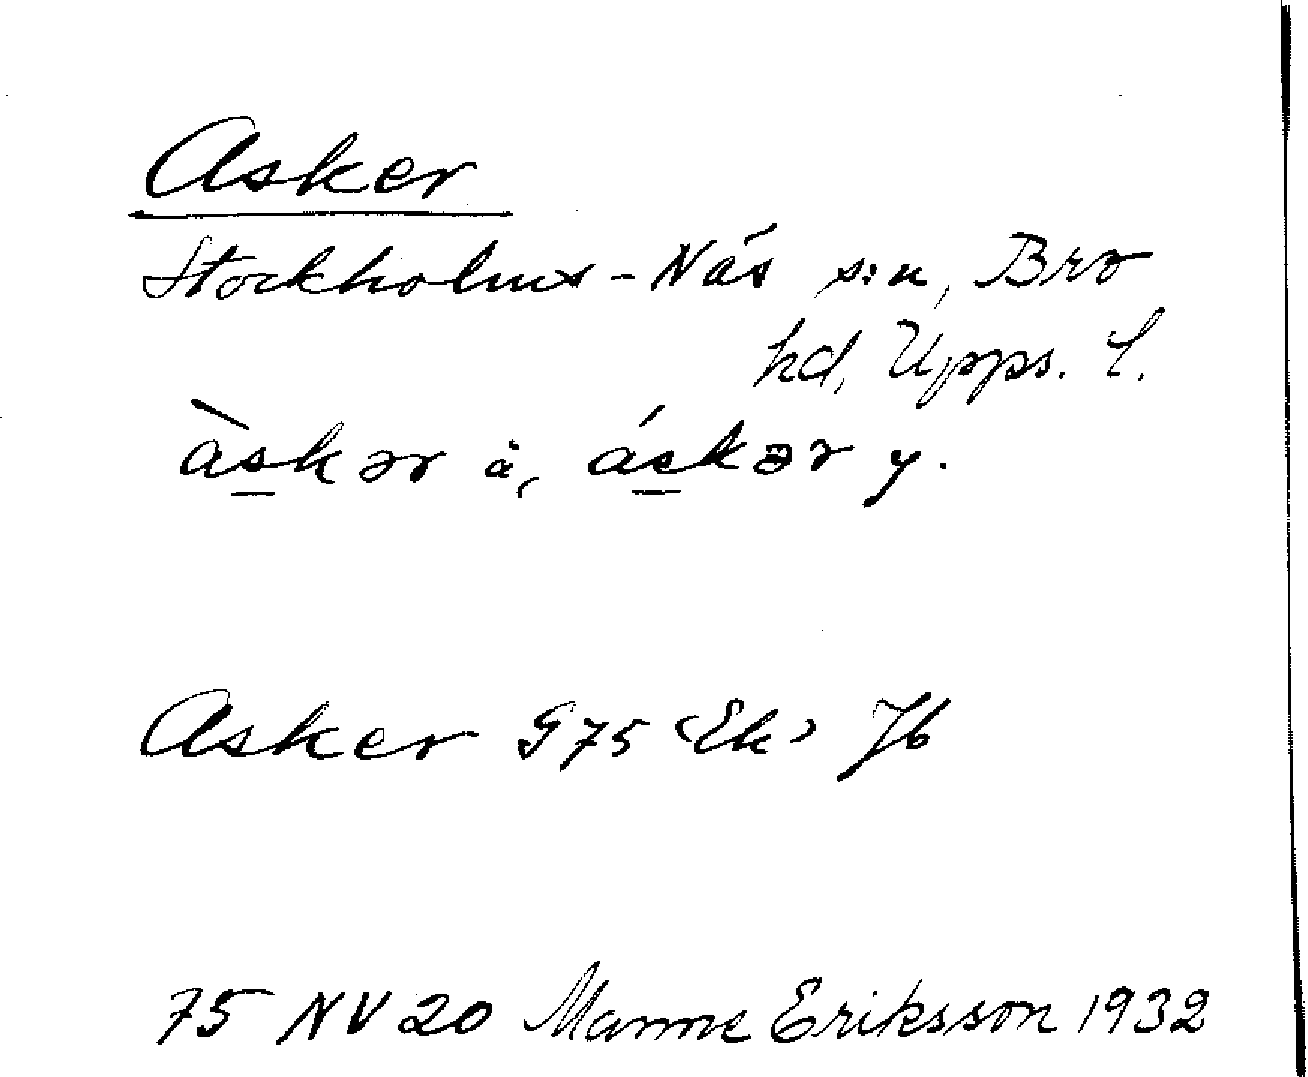 Asker
Stockholms-Näs s:n, Bro
hd, Upps. l.
àskər ä, áskər y.
Asker G75 (Ek) Jb
75 NV 20 Manne Eriksson 1932